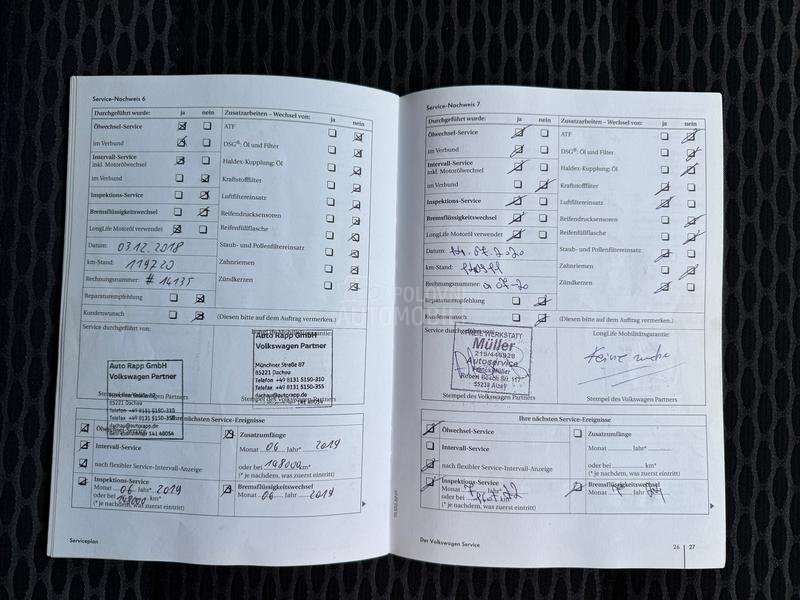 Service-Nachweis 6
Durchgeführt wurde: ja nein Zusatzarbeiten – Wechsel von: ja nein
Ölwechsel-Service ATF
im Verbund DSG®: Öl und Filter
Intervall-Service
inkl. Motorölwechsel Haldex-Kupplung: Öl
im Verbund Kraftstofffilter
Inspektions-Service Luftfiltereinsatz
Bremsflüssigkeitswechsel Reifendrucksensoren
LongLife Motoröl verwendet Reifenfüllflasche
Datum: 03.12.2018 Staub- und Pollenfiltereinsatz
km-Stand: 119720 Zahnriemen
Rechnungsnummer: # 14135 Zündkerzen
Reparaturempfehlung
Kundenwunsch (Diesen bitte auf dem Auftrag vermerken.)
Service durchgeführt von: LongLife Mobilitätsgarantie:
Auto Rapp GmbH
Volkswagen Partner
Münchner Straße 87
85221 Dachau
Telefon +49 8131 5150-310
Telefax +49 8131 5150-355
dachau@autorapp.de
Auto Rapp GmbH
Volkswagen Partner
Münchner Straße 87
85221 Dachau
Telefon +49 8131 5150-310
Telefax +49 8131 5150-355
dachau@autorapp.de
Stempel des Volkswagen Partners Stempel des Volkswagen Partners
Ihre nächsten Service-Ereignisse
Ölwechsel-Service Zusatzumfänge
Intervall-Service Monat 06 Jahr* 2019
nach flexibler Service-Intervall-Anzeige oder bei 148000 km*
(* je nachdem, was zuerst eintritt)
Inspektions-Service
Monat 06 Jahr* 2019 Bremsflüssigkeitswechsel
oder bei 148000 km* Monat 06 Jahr 2019
(* je nachdem, was zuerst eintritt)
Serviceplan
Service-Nachweis 7
Durchgeführt wurde: ja nein Zusatzarbeiten – Wechsel von: ja nein
Ölwechsel-Service ATF
im Verbund DSG®: Öl und Filter
Intervall-Service
inkl. Motorölwechsel Haldex-Kupplung: Öl
im Verbund Kraftstofffilter
Inspektions-Service Luftfiltereinsatz
Bremsflüssigkeitswechsel Reifendrucksensoren
LongLife Motoröl verwendet Reifenfüllflasche
Datum: 07.2020 Staub- und Pollenfiltereinsatz
km-Stand: Zahnriemen
Rechnungsnummer: Zündkerzen
Reparaturempfehlung
Kundenwunsch (Diesen bitte auf dem Auftrag vermerken.)
Service durchgeführt von: LongLife Mobilitätsgarantie:
FREIE WERKSTATT
Müller
Autoservice
Müller
Robert Bosch Str.
55232 Alzey
Keine mehr
Stempel des Volkswagen Partners Stempel des Volkswagen Partners
Ihre nächsten Service-Ereignisse
Ölwechsel-Service Zusatzumfänge
Intervall-Service Monat Jahr*
nach flexibler Service-Intervall-Anzeige oder bei km*
(* je nachdem, was zuerst eintritt)
Inspektions-Service
Monat Jahr* Bremsflüssigkeitswechsel
oder bei km* Monat Jahr
(* je nachdem, was zuerst eintritt)
Der Volkswagen Service 26 27
POLOVNI
AUTOMOBILI